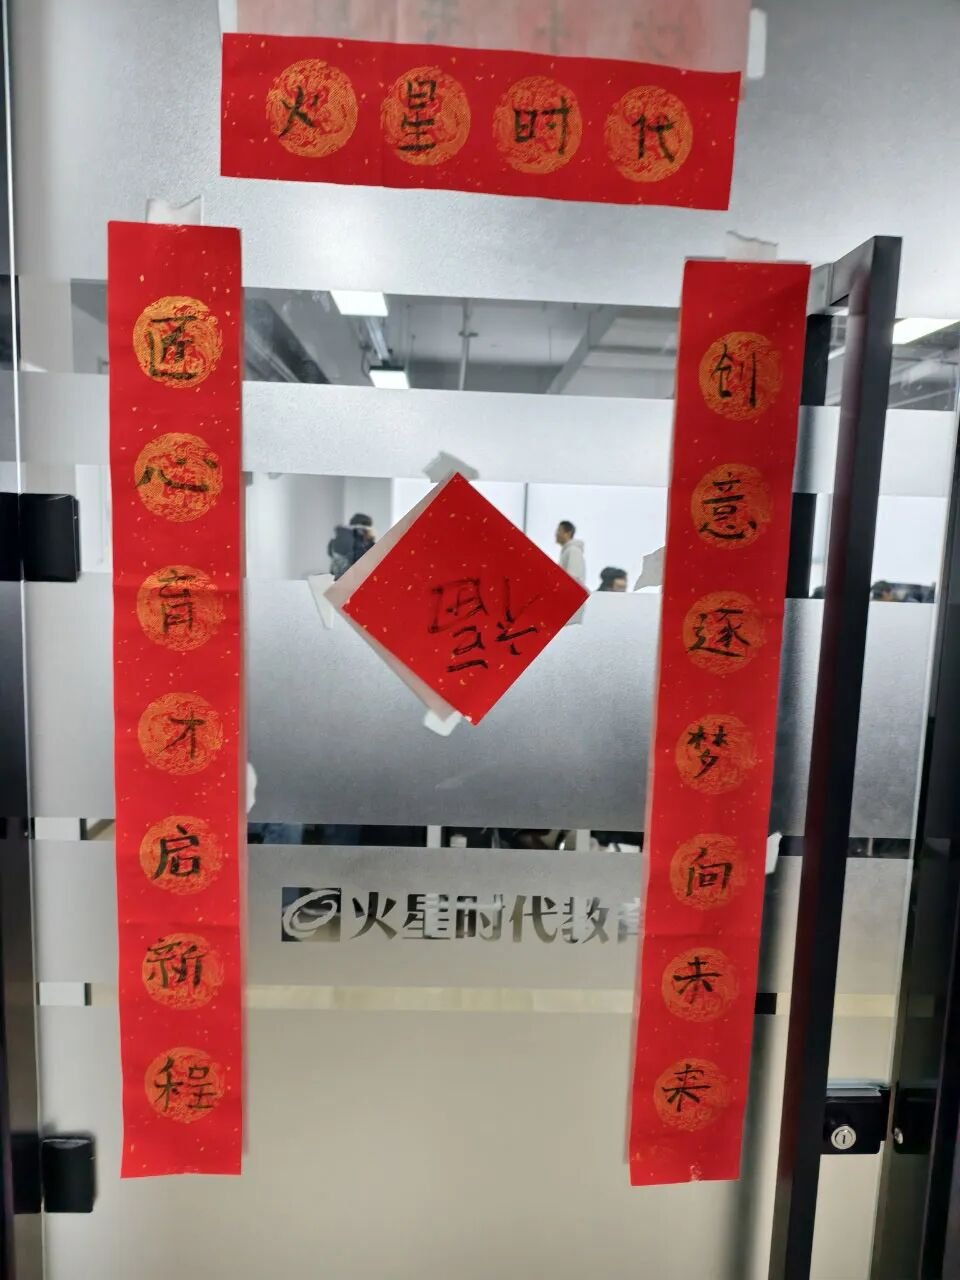 火星时代
创意逐梦向未来
匠心育才启新程
福
火星时代教育